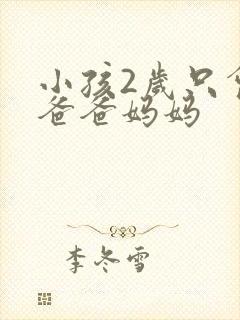 小孩2岁只
爸爸妈妈
李冬雪